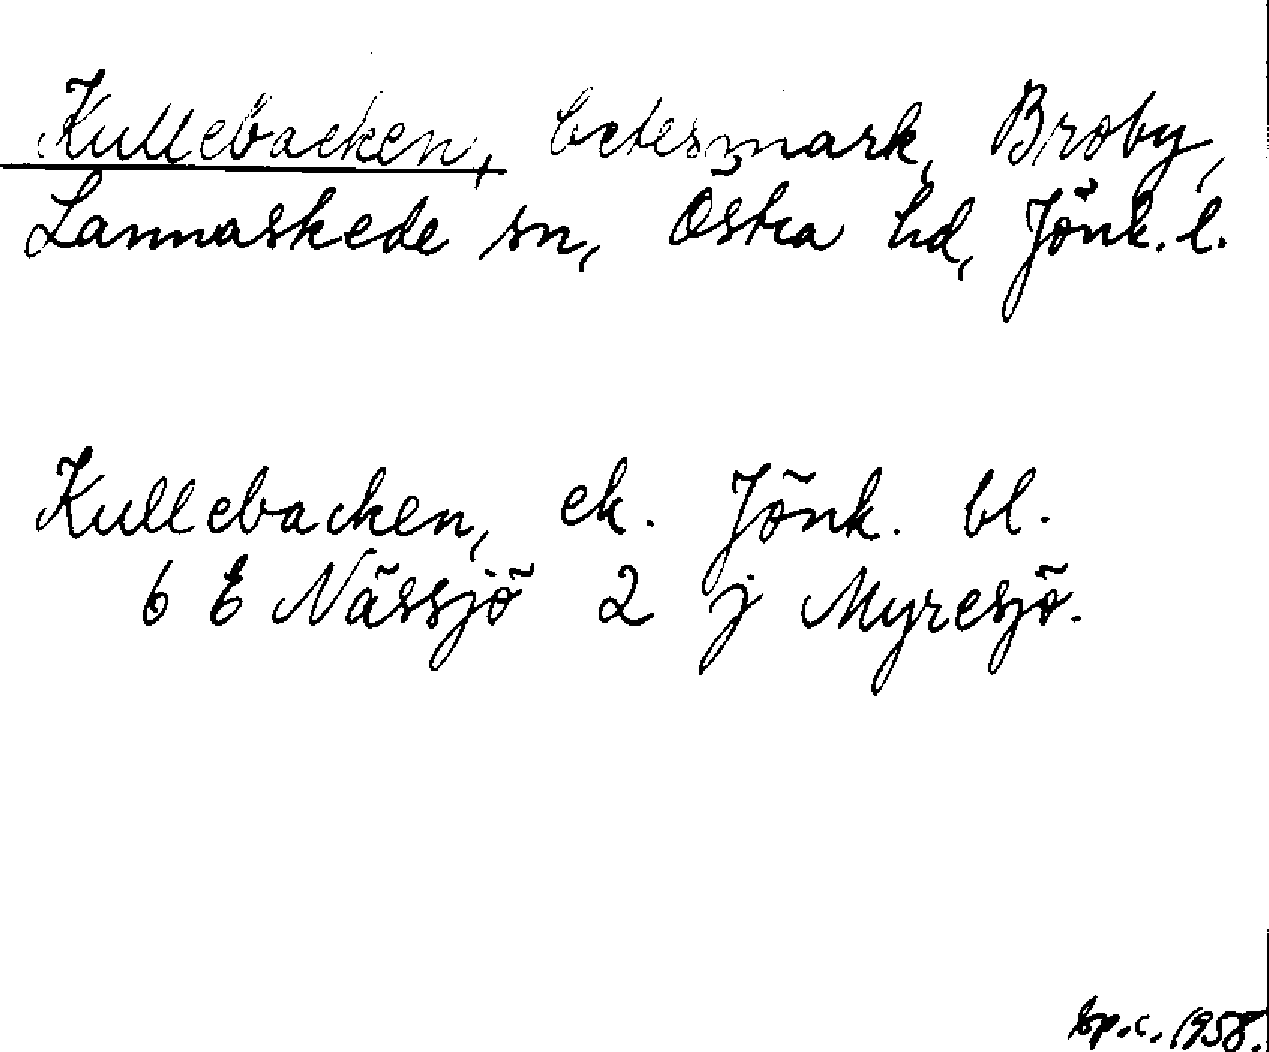 Kullebacken, betesmark, Broby,
Lannaskede sn, Östra hd, Jönk. l.
Kullebacken, ek. Jönk. bl.
6 E Nässjö 2 j Myresjö.
Sp.c. 1958.